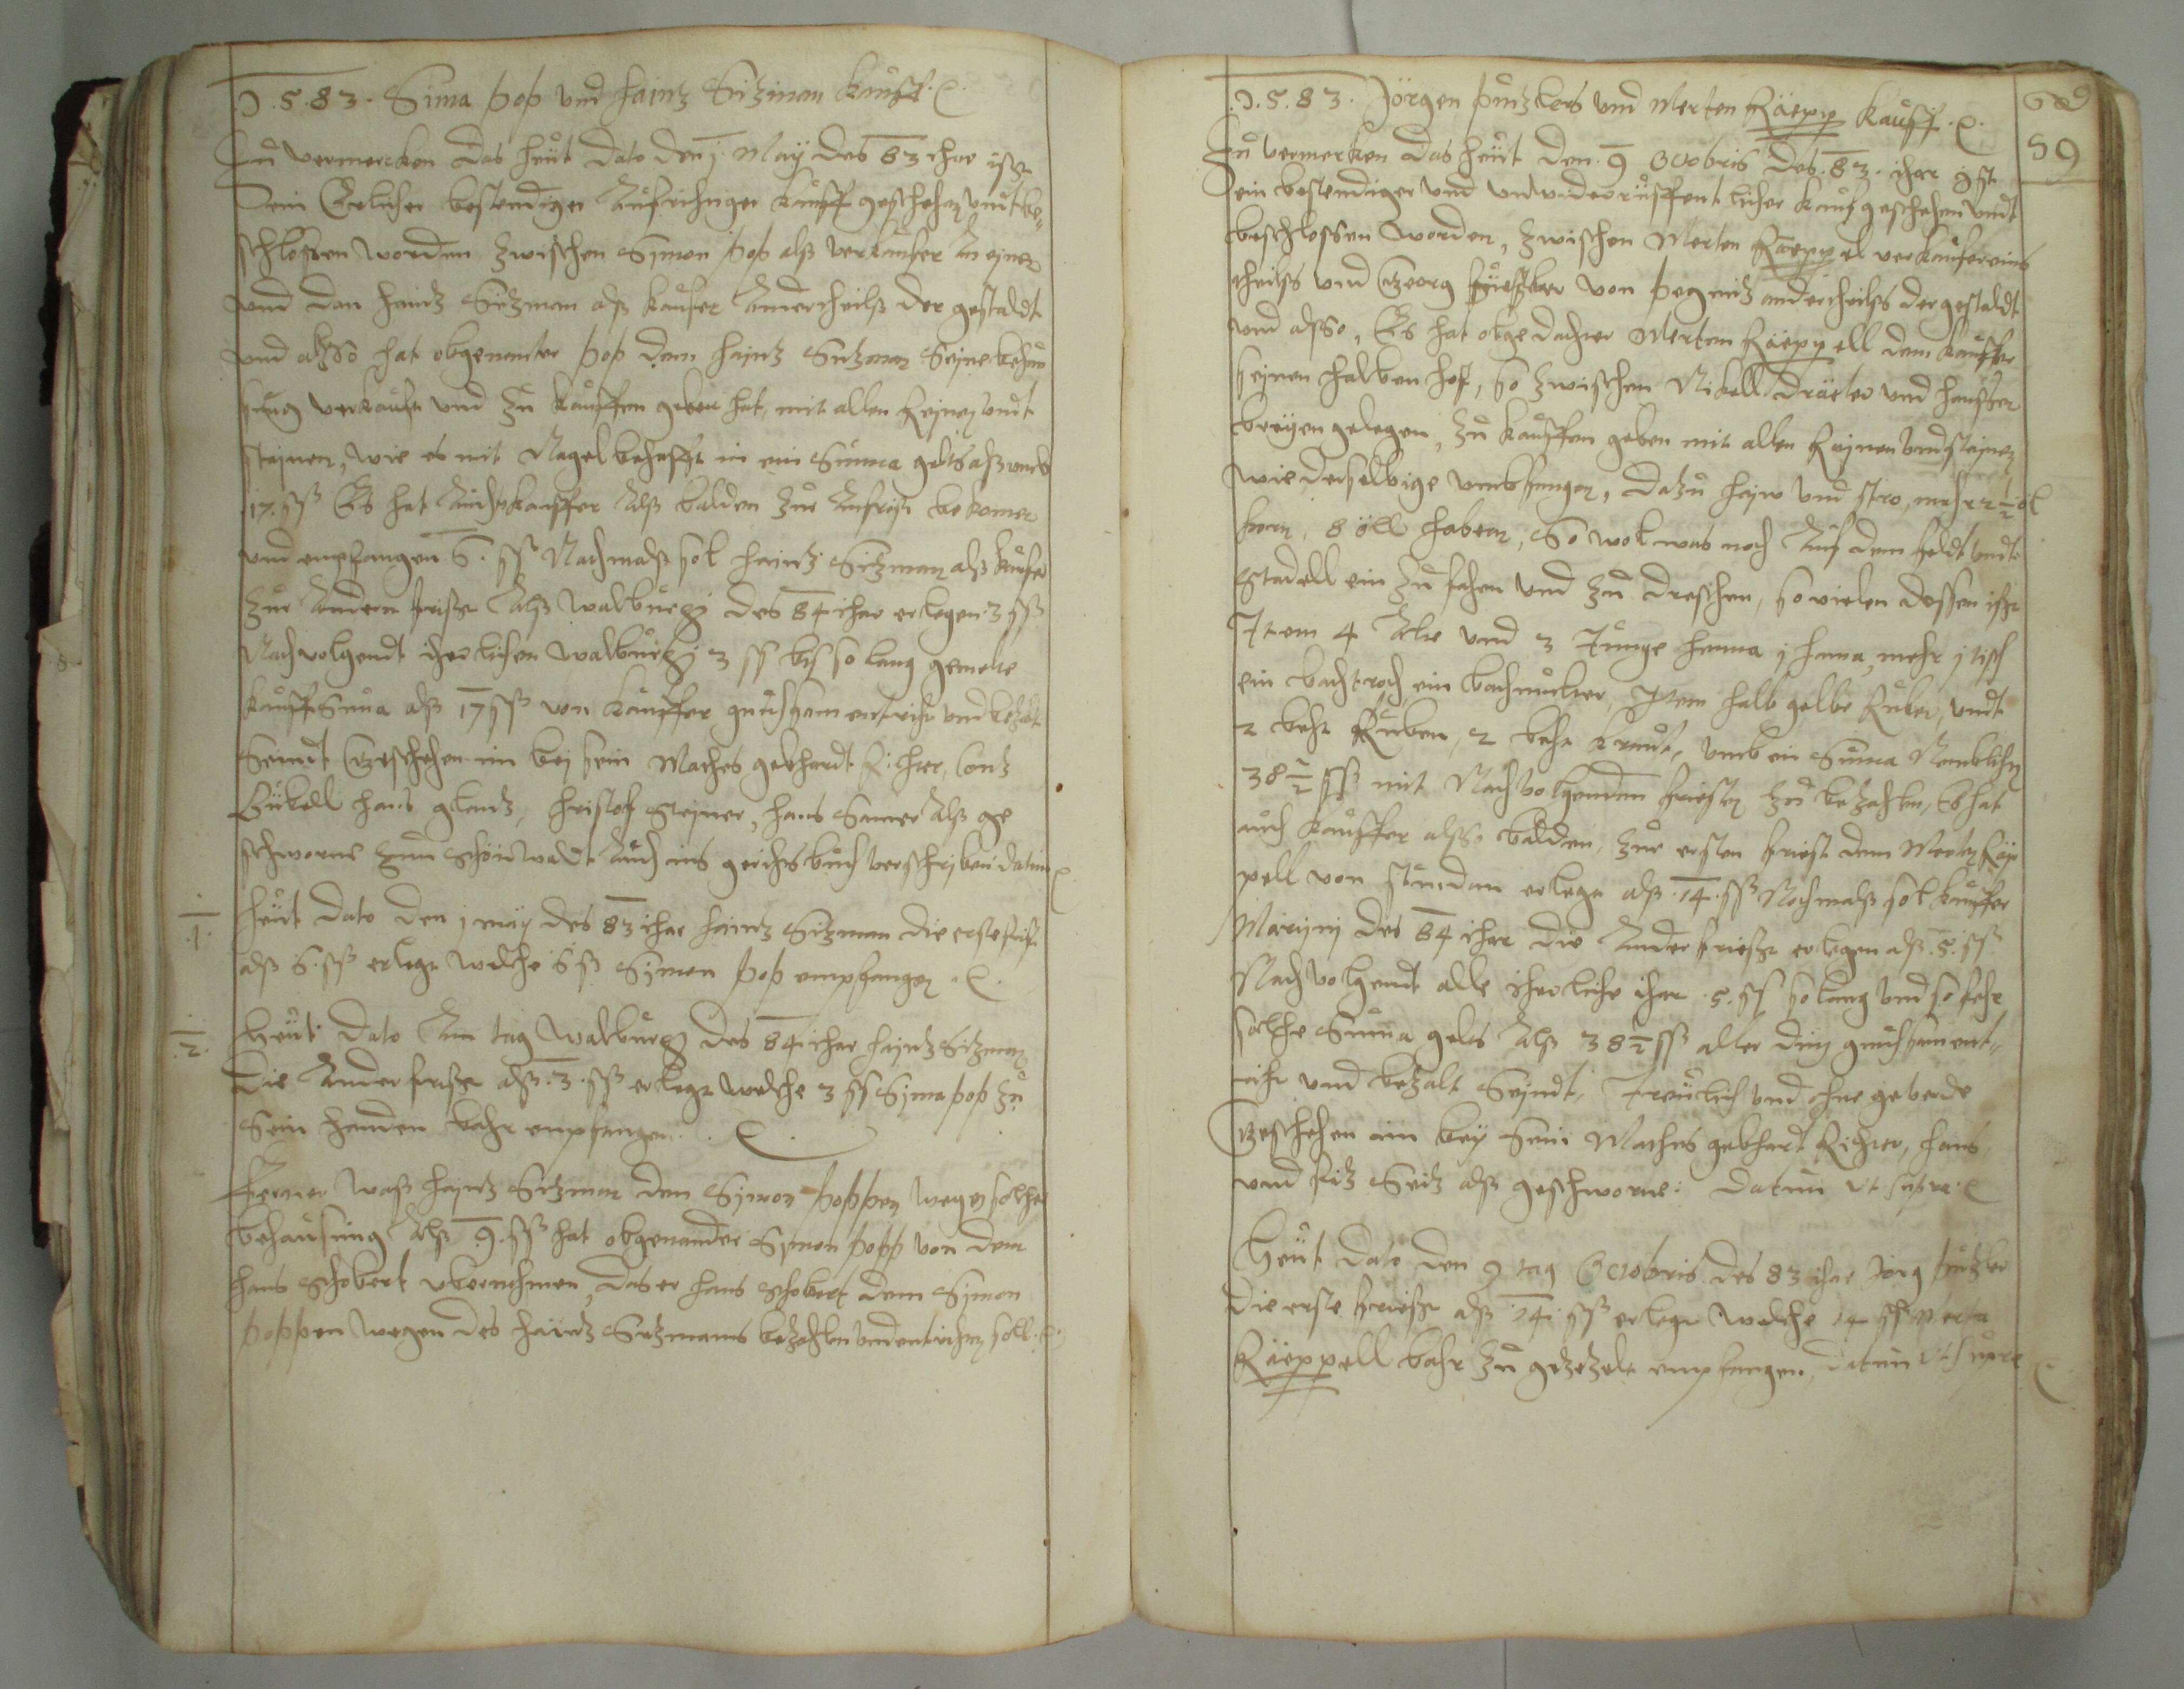 1.5.83. Sima pop und Hainz Sizman Kauff.
Zu vermercken das heut dato den j. Maÿ des 83 ihar ist
ein Erlicher bestendiger Aufrichtiger Kauff geschehen undt be,
schlossen worden, zwischen Symon pop alß verkaufer An einem
und dan Haintz Sitzman alß kaufer Anderstheilß der gestaldt
und alßo hat obgenanter pop dem Haintz Sitzman Seine behau
sung verkaufft und zu kauffen geben hat, mit allen Reinen undt
steinen, wie es mit Nagel behafft in ein Suma gelts alß umb
17. ß Es hat Auch kauffer Alß balden zur Anfrist bekomen
und empfangen 6. ß Nachmalß sol Haintz Sitzman alß kaufer
zur Andern frist Alß Walburgi des 84 ihar erlegen 3 ß
Nachvolgendt iherlichen Walburgi 3 ß bis so lang gemelte
kauffsuma alß 17 ß von kauffer gnuchsam entricht und bezalt
Seindt Geschehen im beÿ sein Mathes gebhardt Richter, Contz
Hans glantz, Christof Steiner, Hans Saurer Alß ge
schworne zum Schönwaldt Auch ins gerichtsbuch verschriben datum
.1.
Heut dato den j maÿ des 83 ihar Haintz Sitzman die erste frist
alß 6. ß erlegt welche 6 ß Symon pop empfangen.
.2.
Heut dato Am tag Walburgi des 84 ihar Haintz Sitzman
die Ander frist alß 3. ß erlegt welche 3 ß Syma pop zu
Sein handen bahr empfangen.
Ferner waß Haintz Sitzman dem Symon poppen wegen solcher
behausung Alß 9. ß hat obgenander Symon popp von dem
Hans Schobert ubernehmen, das er Hans Schobert dem Symon
poppen wegen des Haintz Sitzmans bezahlen und entrichten soll.
59
1.5.83. Jörgen pintzkers und Merten Räepp Kauff.
Zu vermerken das heut den 9 Octobris des .83. ihar ist
ein bestendiger und unwiderruffentlicher kauf geschehen undt
beschlossen worden, zwischen Merten Räeppel verkaufer eins
theilß und Georg von pegnitz anderstheilß der gestaldt
und alßo, Es hat obgedachter Merten Räeppell dem kauffer
seinen halben hof, so zwischen Nickell und Hansen
gelegen, zu kauffen geben mit allen Reinen und steinen
wie derselbige umbfangen, dazu heu und stro, mehr 2 ½ öl
korn, 8 öll habern, So wol was noch Auf dem feldt undt
Stadell ein zu fahen und zu dreschen, so vielen dessen ist
Item 4 Alte und 3 Junge henna j hana, mehr j tisch
ein bachtroch ein, Item halb gelbe Ruben, undt
2 beht Ruben, 2 beht kraut, umb ein Suma Nemblichen
38 ½ ß mit Nachvolgenden fristen zu bezahlen, Es hat
auch kauffer alß balden, zur ersten frist dem Merten Räp
pell von stundan erlegt alß .14. ß Nachmalß sol kauffer
Martini des 84 ihar die Ander frist erlegen alß .5. ß
Nachvolgent alle iherliche ihar .5. ß so lang und so fehr
solche Suma gelts Alß 38 ½ ß aller ding gnuchsam ent,
richt und bezalt Seindt, Treulich und ohne geverde
Geschehen im beÿ Sein Mathes gebhart Richter, Hans
und fritz Seitz alß geschworne: Datum Ut supra
Heut dato den 9 tag Octobris des 83 ihar Jörg
die erste frist alß 14. ß erlegt welche 14 ß Merta
Räeppell bahr zu gezehlt empfangen, Datum Ut supra